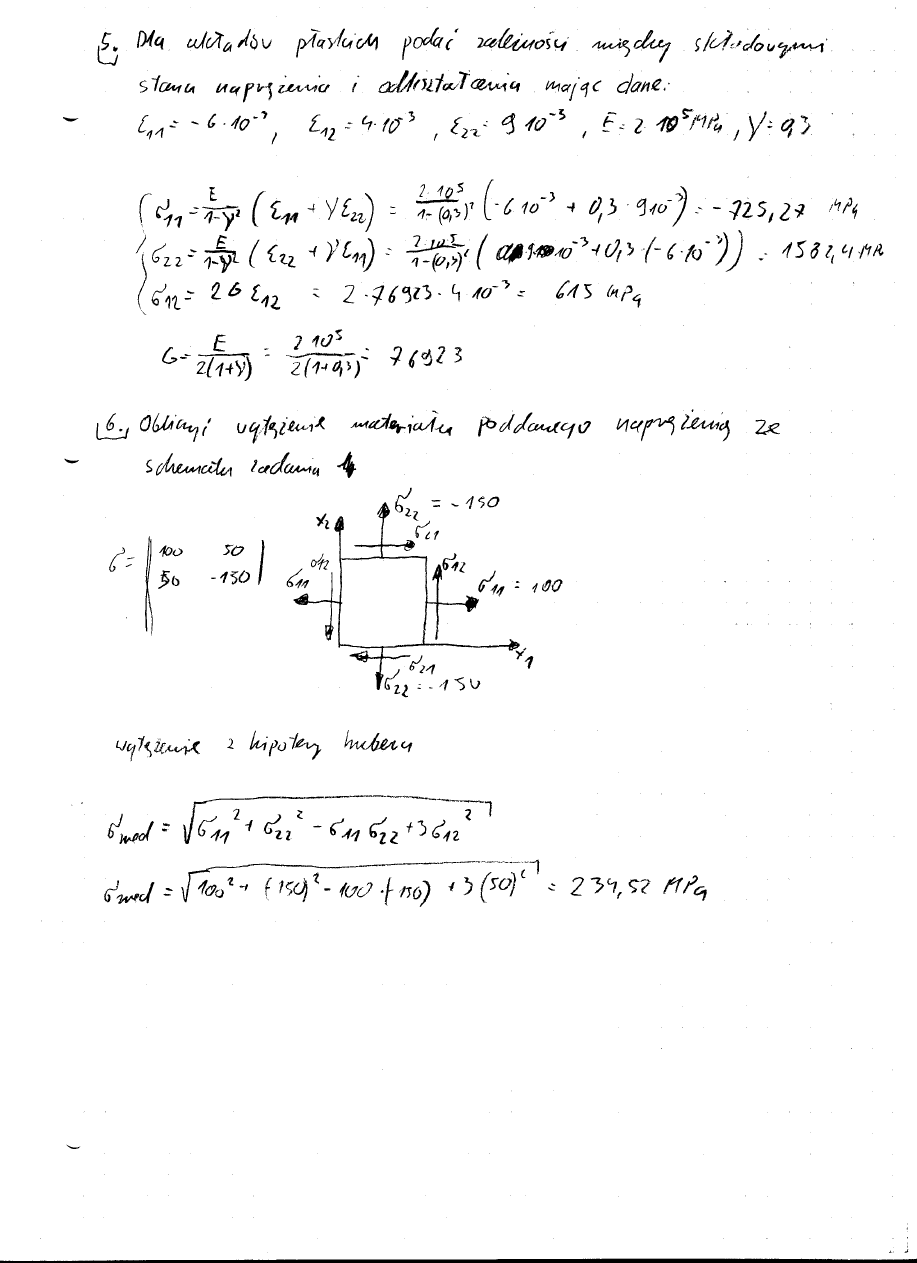 5. Dla układów płaskich podać zależności między składowymi
stanu naprężenia i odkształcenia mając dane:
ε11 = -6·10^-3, ε12 = 4·10^-3, ε22 = 9 10^-3, E = 2 10^5 MPa, ν = 0,3
σ11 = E/(1-ν²) (ε11 + νε22) = 2·10^5/(1-(0,3)²) (-6 10^-3 + 0,3 · 9 10^-3) = -725,27 MPa
σ22 = E/(1-ν²) (ε22 + νε11) = 2·10^5/(1-(0,3)²) ( 9·10^-3 + 0,3 (-6·10^-3)) = 1582,4 MPa
σ12 = 2G ε12 = 2·76923·4 10^-3 = 615 MPa
G = E/2(1+ν) = 2 10^5/2(1+0,3) = 76923
6. Obliczyć wytężenie materiału poddanego naprężenią ze
schematu zadania 4
σ22 = -150
x2
σ21
σ = | 100 50 |
| 50 -150 |
σ12
σ12
σ11
σ11 = 100
x1
σ21
σ22 = -150
wytężenie z hipotezy hubera
σred = √(σ11² + σ22² - σ11 σ22 + 3σ12²)
σred = √(100² + (-150)² - 100·(-150) + 3(50)²) = 234,52 MPa